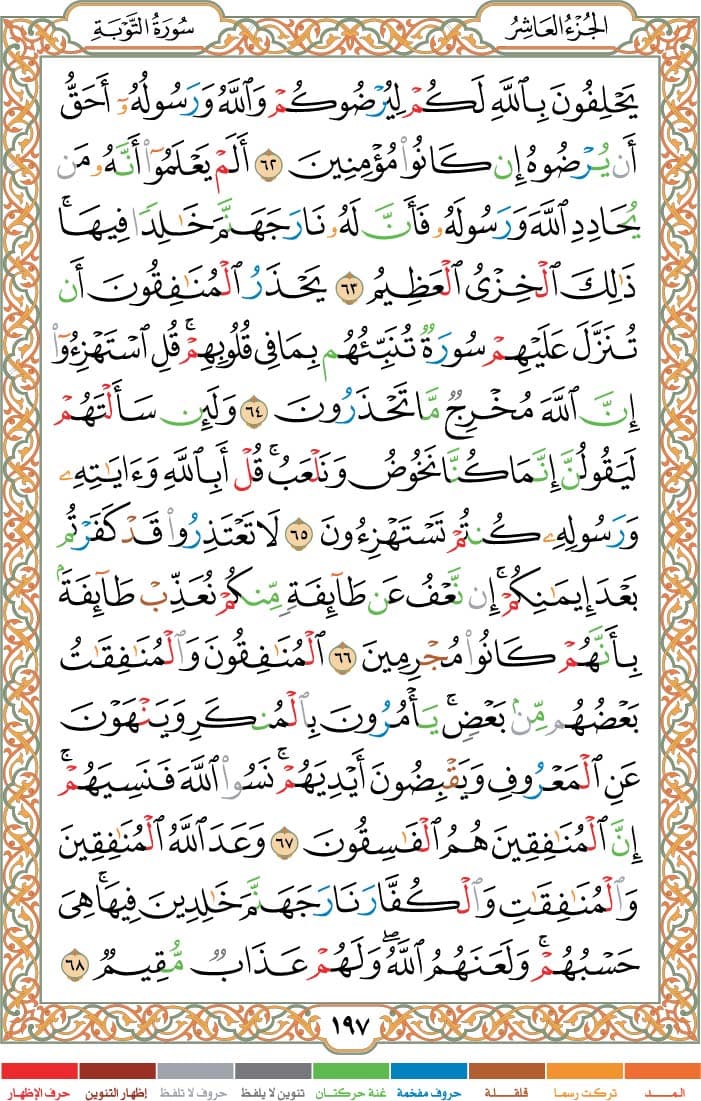 الجزء العاشر
سورة التوبة
يَحْلِفُونَ بِٱللَّهِ لَكُمْ لِيُرْضُوكُمْ وَٱللَّهُ وَرَسُولُهُۥٓ أَحَقُّ
أَن يُرْضُوهُ إِن كَانُوا۟ مُؤْمِنِينَ ٦٢ أَلَمْ يَعْلَمُوٓا۟ أَنَّهُۥ مَن
يُحَادِدِ ٱللَّهَ وَرَسُولَهُۥ فَأَنَّ لَهُۥ نَارَ جَهَنَّمَ خَٰلِدًا فِيهَا ۚ
ذَٰلِكَ ٱلْخِزْىُ ٱلْعَظِيمُ ٦٣ يَحْذَرُ ٱلْمُنَٰفِقُونَ أَن
تُنَزَّلَ عَلَيْهِمْ سُورَةٌ تُنَبِّئُهُم بِمَا فِى قُلُوبِهِمْ ۚ قُلِ ٱسْتَهْزِءُوٓا۟
إِنَّ ٱللَّهَ مُخْرِجٌ مَّا تَحْذَرُونَ ٦٤ وَلَئِن سَأَلْتَهُمْ
لَيَقُولُنَّ إِنَّمَا كُنَّا نَخُوضُ وَنَلْعَبُ ۚ قُلْ أَبِٱللَّهِ وَءَايَٰتِهِۦ
وَرَسُولِهِۦ كُنتُمْ تَسْتَهْزِءُونَ ٦٥ لَا تَعْتَذِرُوا۟ قَدْ كَفَرْتُم
بَعْدَ إِيمَٰنِكُمْ ۚ إِن نَّعْفُ عَن طَآئِفَةٍ مِّنكُمْ نُعَذِّبْ طَآئِفَةًۢ
بِأَنَّهُمْ كَانُوا۟ مُجْرِمِينَ ٦٦ ٱلْمُنَٰفِقُونَ وَٱلْمُنَٰفِقَٰتُ
بَعْضُهُم مِّنۢ بَعْضٍ ۚ يَأْمُرُونَ بِٱلْمُنكَرِ وَيَنْهَوْنَ
عَنِ ٱلْمَعْرُوفِ وَيَقْبِضُونَ أَيْدِيَهُمْ ۚ نَسُوا۟ ٱللَّهَ فَنَسِيَهُمْ ۗ
إِنَّ ٱلْمُنَٰفِقِينَ هُمُ ٱلْفَٰسِقُونَ ٦٧ وَعَدَ ٱللَّهُ ٱلْمُنَٰفِقِينَ
وَٱلْمُنَٰفِقَٰتِ وَٱلْكُفَّارَ نَارَ جَهَنَّمَ خَٰلِدِينَ فِيهَا ۚ هِىَ
حَسْبُهُمْ ۚ وَلَعَنَهُمُ ٱللَّهُ ۖ وَلَهُمْ عَذَابٌ مُّقِيمٌ ٦٨
١٩٧
المــد تركت رسما قلقلة حروف مفخمة غنة حركتان تنوين لا يلفظ حروف لا تلفظ إظهار التنوين حرف الإظهار